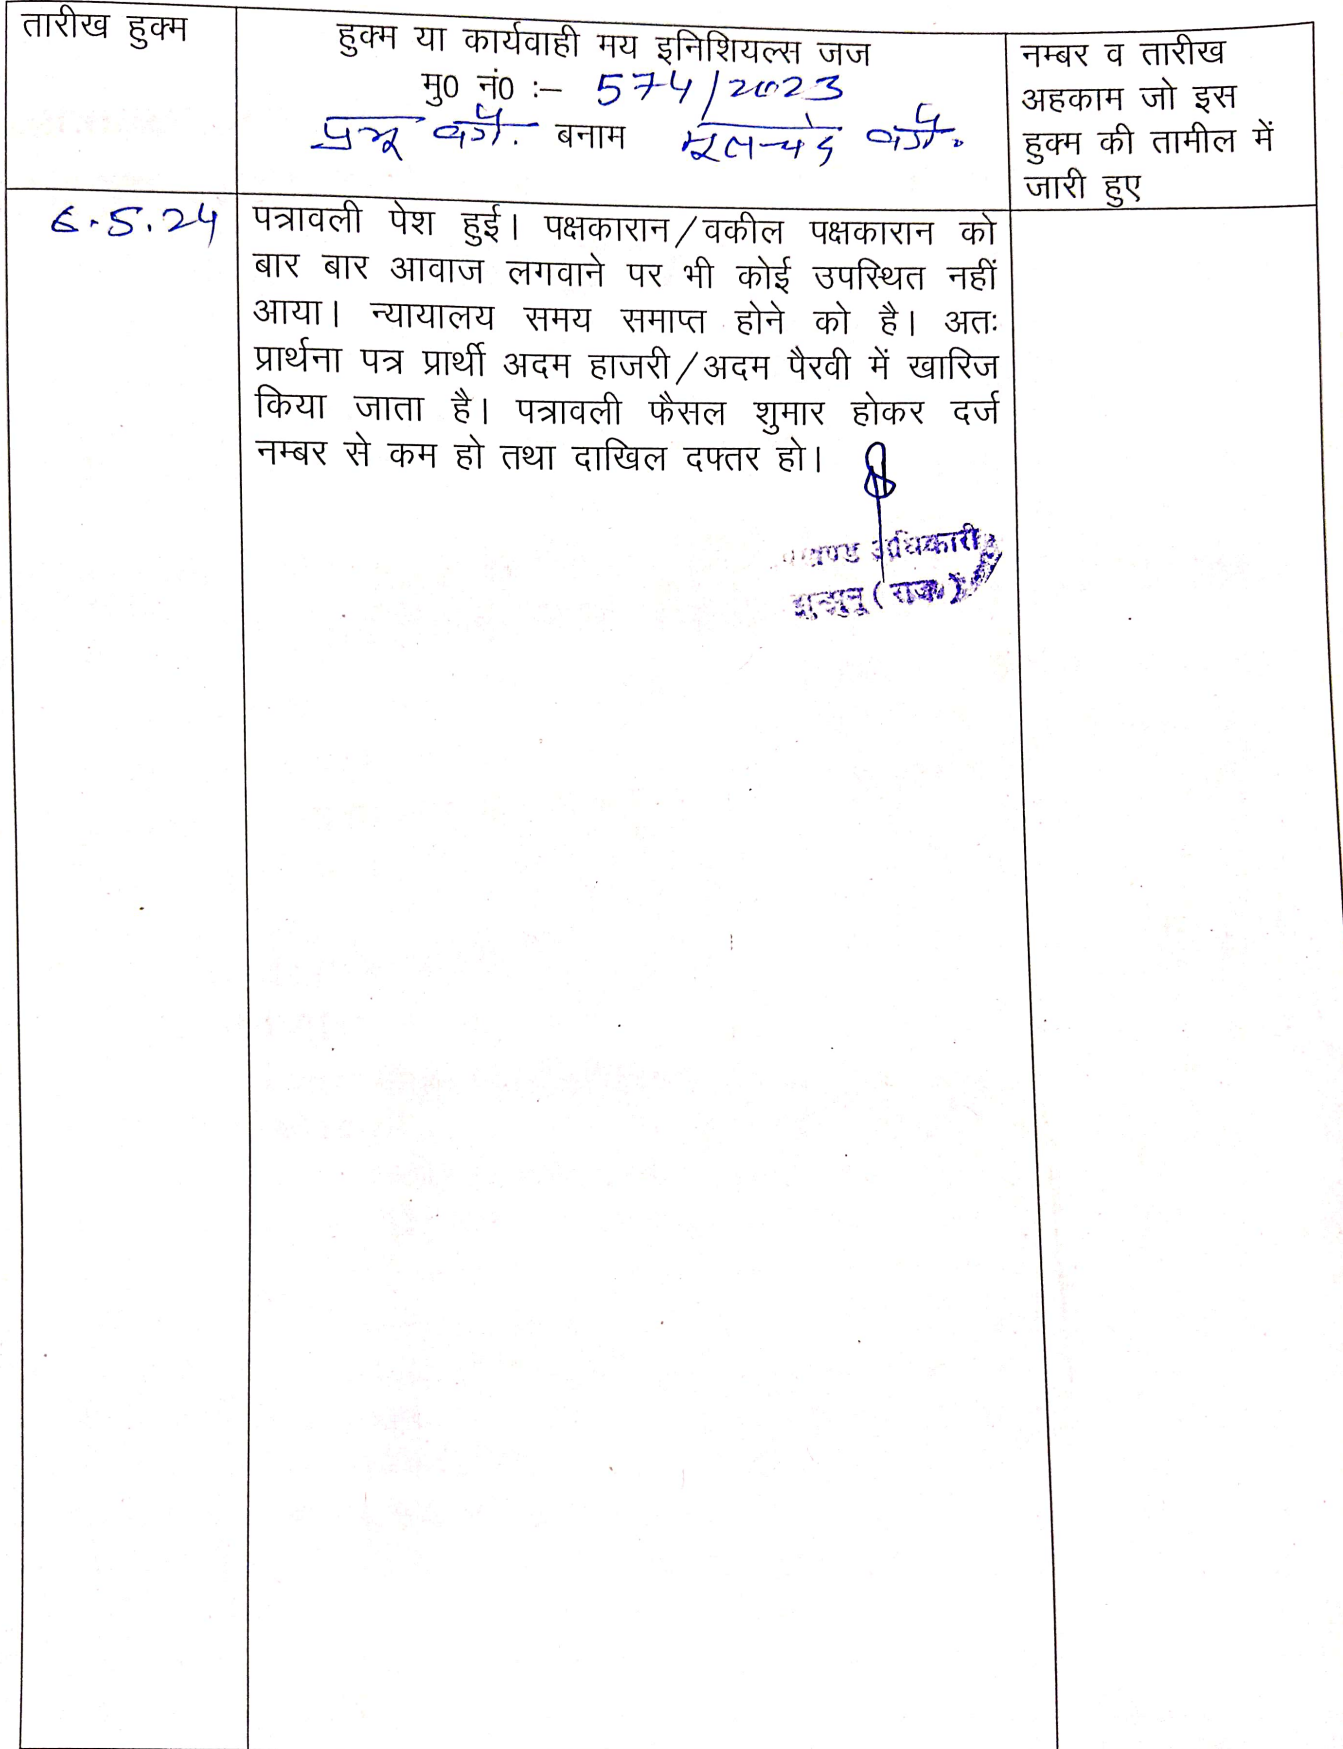 तारीख हुक्म
हुक्म या कार्यवाही मय इनिशियल्स जज
मु0 नं0 :– 574/2023
प्रभू वगै. बनाम मूलचंद वगै.
नम्बर व तारीख
अहकाम जो इस
हुक्म की तामील में
जारी हुए
6.5.24
पत्रावली पेश हुई। पक्षकारान/वकील पक्षकारान को
बार बार आवाज लगवाने पर भी कोई उपस्थित नहीं
आया। न्यायालय समय समाप्त होने को है। अतः
प्रार्थना पत्र प्रार्थी अदम हाजरी/अदम पैरवी में खारिज
किया जाता है। पत्रावली फैसल शुमार होकर दर्ज
नम्बर से कम हो तथा दाखिल दफ्तर हो।
अधिकारी
झुन्झुनू (राज०)